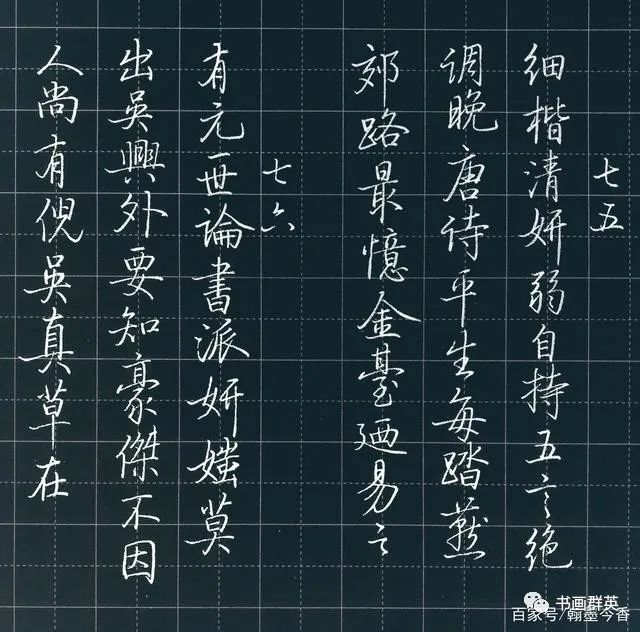 七五
细楷清妍弱自持五言绝
调晚唐诗平生每踏燕
郊路最憶金臺迺易之
七六
有元一世論書派妍媸莫
出吳興外要知豪傑不因
人尚有倪吳真草在
书画群英
百家号/翰墨今香